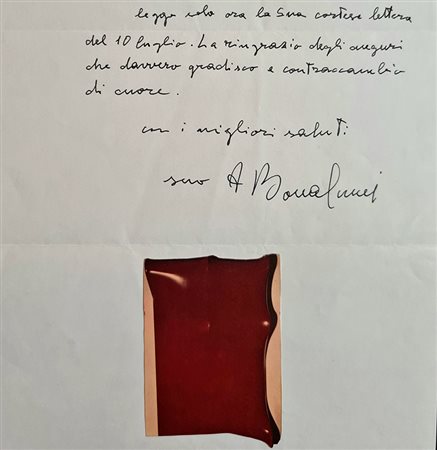 leggo solo ora la Sua cortese lettera
del 10 luglio. La ringrazio degli auguri
che davvero gradisco e contraccambio
di cuore.
con i migliori saluti
suo A Bonalumi